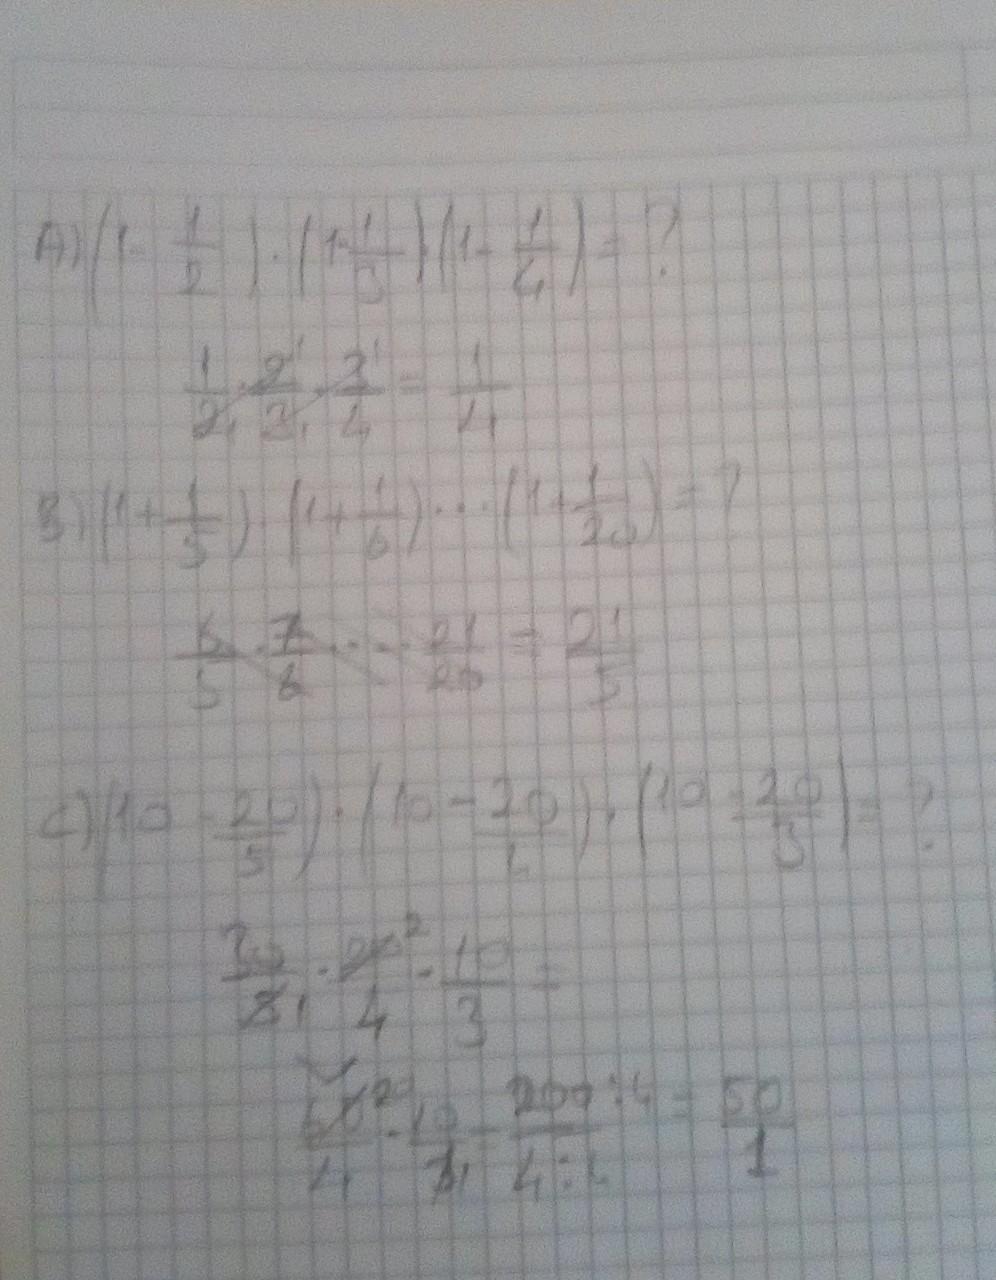 A) (1 - 1/2) · (1 - 1/3) · (1 - 1/4) = ?
1/2 · 2/3 · 3/4 = 1/4
B) (1 + 1/5) (1 + 1/6) · ... (1 + 1/20) = ?
6/5 · 7/6 · ... 21/20 = 21/5
C) (10 - 20/5) · (10 - 20/4) · (10 - 20/3) = ?
30/5 · 20/4 · 10/3 =
60/4 · 10/3 = 200:4/4:4 = 50/1